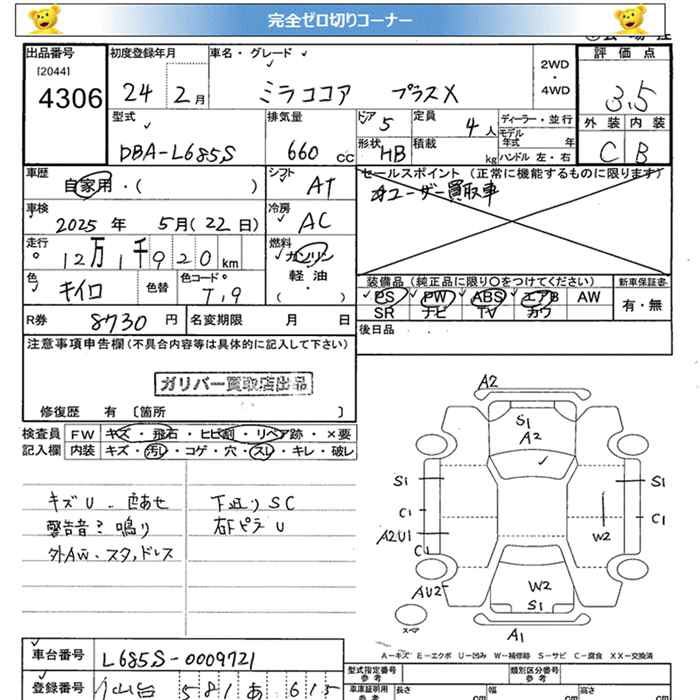 完全ゼロ切りコーナー
出品番号 初度登録年月 車名・グレード 評価点
[2044]
4306 24 2月 ミラココア プラスX 2WD・4WD 3.5
型式 排気量 ドア 5 定員 4人 ディーラー・並行 外装 内装
モデル年式 年
DBA-L685S 660 CC 形状 HB 積載 kg ハンドル 左・右 C B
車歴 自家用・( ) シフト AT セールスポイント (正常に機能するものに限ります)
ユーザー買取車
車検 2025年 5月(22日) 冷房 AC
走行 12万1千920km 燃料 ガソリン
軽・油
( )
色 キイロ 色替 色コード T.9
装備品 (純正品に限り〇をつけてください) 新車保証書
PS PW ABS エアB AW 有・無
SR ナビ TV カワ
R券 8730円 名変期限 月 日 後日品
注意事項申告欄(不具合内容等は具体的に記入して下さい)
ガリバー買取店出品
修復歴 有 〔箇所 〕
検査員 FW キズ・飛石・ヒビ割・リペア跡・×要
記入欄 内装 キズ・汚レ・コゲ・穴・スレ・キレ・破レ
キズU 色あせ 下廻りSC
警告音? 鳴り 右Fピラ U
外AW・スタッドレス
A2
S1
A2
S1 S1
C1 C1
A2U1 W2
C1
AU2 W2
S1
スペア A1
A-キズ E-エクボ U-凹み W-補修跡 S-サビ C-腐食 XX-交換済
車台番号 L685S-0009721
型式指定番号 参考 類別区分番号 参考
登録番号 仙台 581 あ 615
車庫証明用 参考 長さ cm 幅 cm 高さ cm